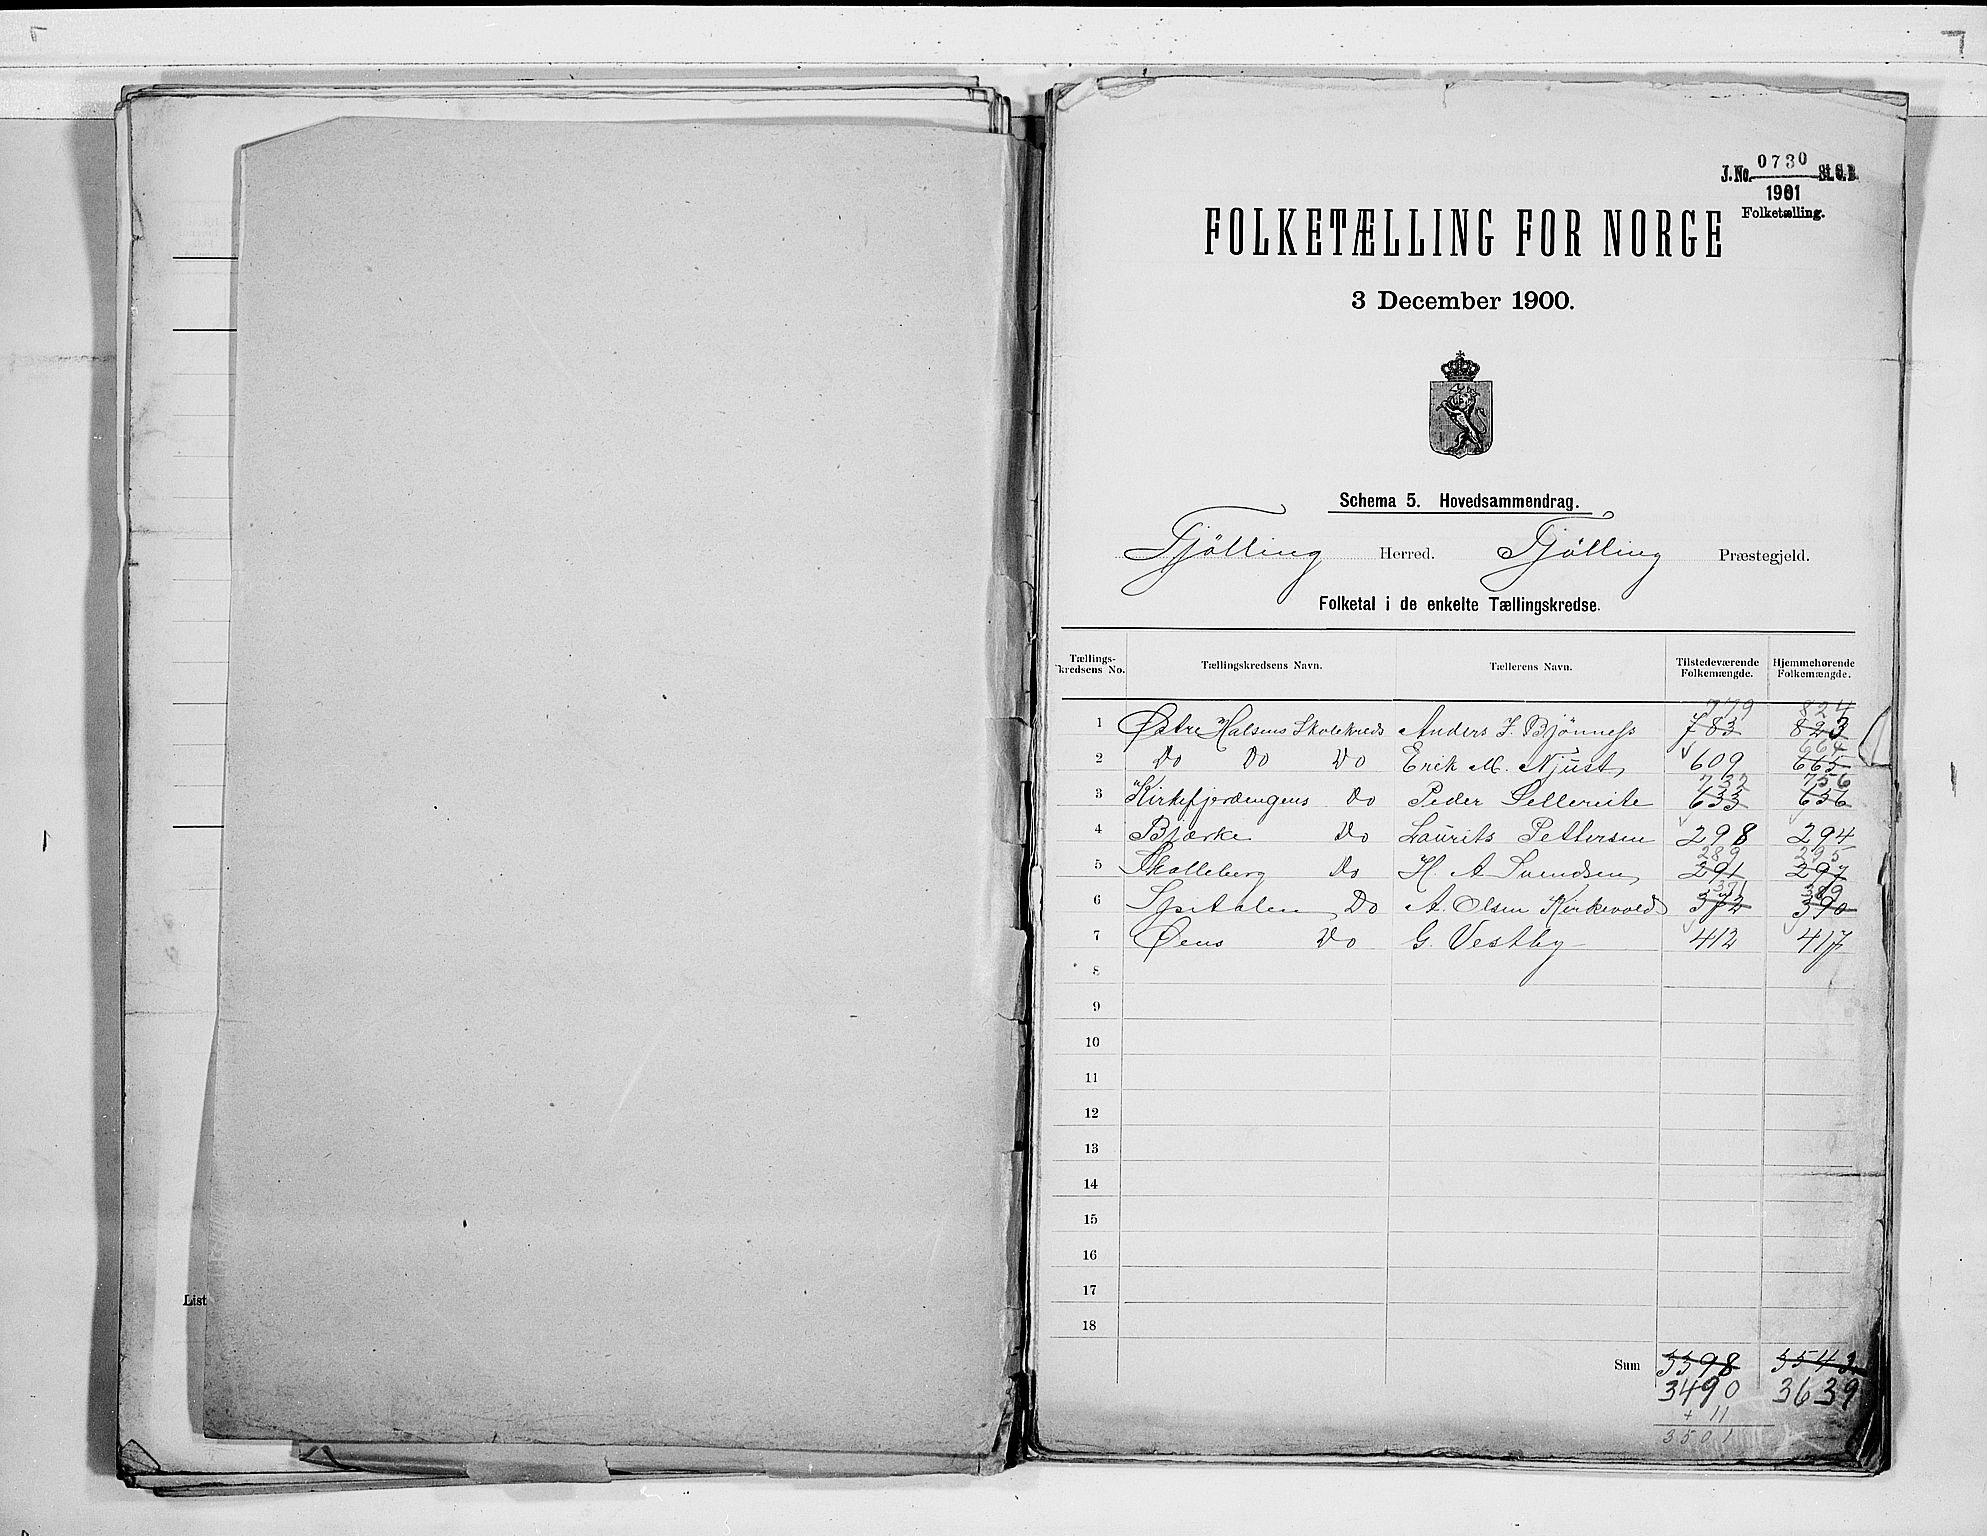 List
J. No. 0730 St. C. B.
1901
Folketælling.
FOLKETÆLLING FOR NORGE
3 December 1900.
Schema 5. Hovedsammendrag.
Tjölling Herred. Tjölling Præstegjeld.
Folketal i de enkelte Tællingskredse.
Tællings-kredsens No. Tællingskredsens Navn. Tællerens Navn. Tilstedeværende Folkemængde. Hjemmehørende Folkemængde.
779 824
1 Østre Halsens Skolekreds Anders J. Bjönness 783 823
664
2 Do Do Do Erik M. Njust 609 665
732 756
3 Kirkefjerdingens Do Peder Sellereite 633 656
4 Bjærke Do Laurits Pettersen 298 294
289 295
5 Skalleberg Do H. A Svendsen 291 297
371 389
6 Spitalen Do A. Olsen Kirkevold 372 390
7 Øens Do G. Vestby 412 417
8
9
10
11
12
13
14
15
16
17
18
Sum 3398 3543
3490 3639
+ 11
3501